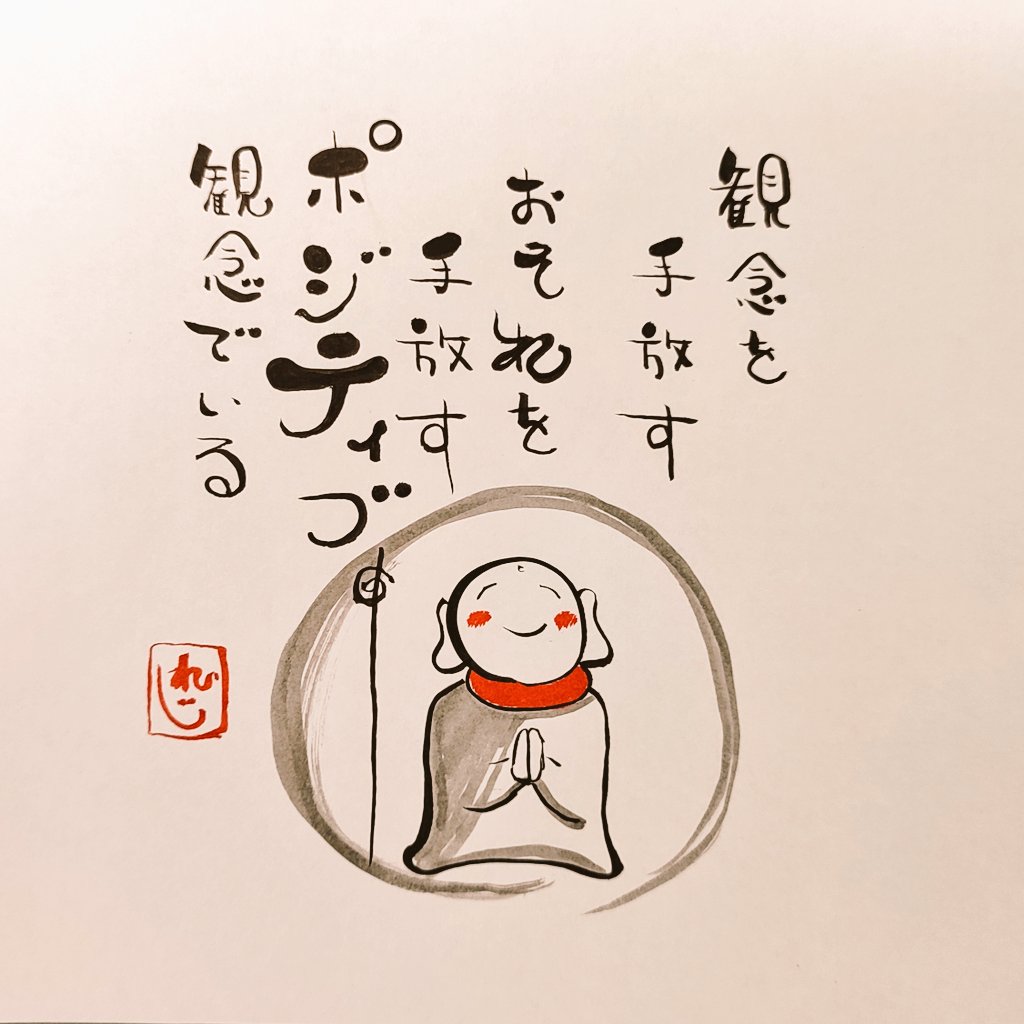 観念を
手放す
おそれを
手放す
ポジティブ
観念でいる